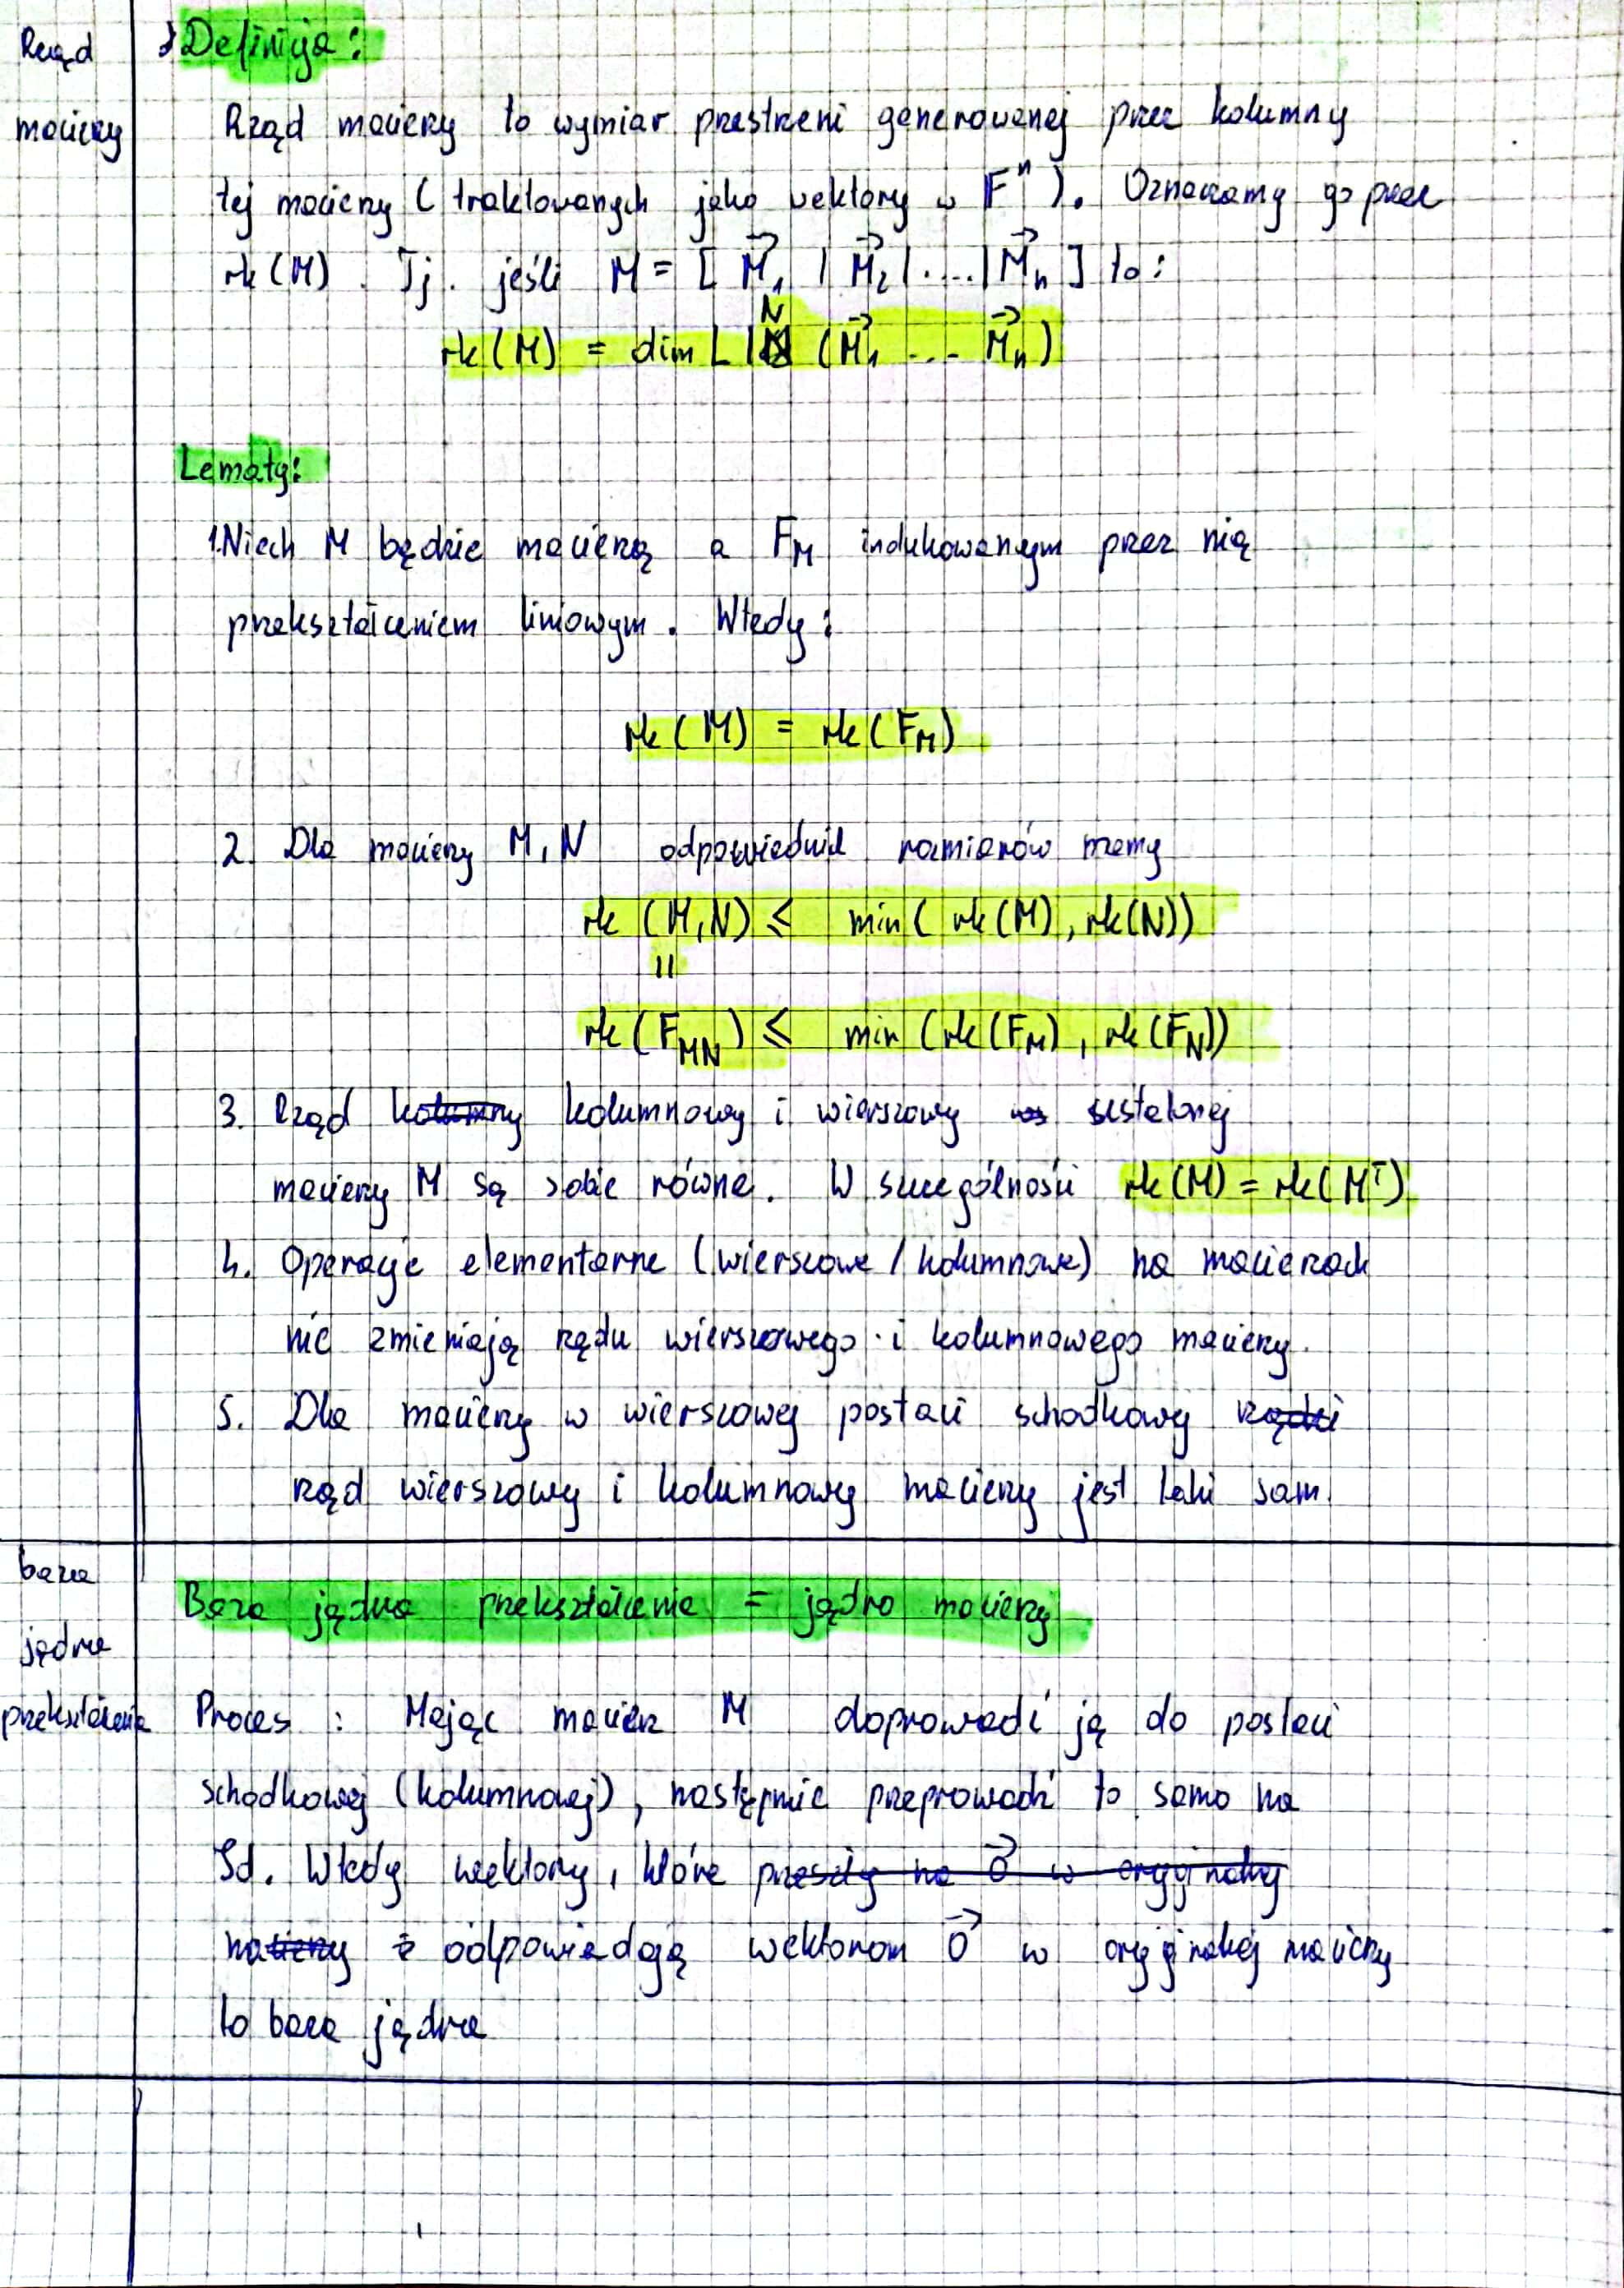 Rząd
macierzy
Definicja:
Rząd macierzy to wymiar przestrzeni generowanej przez kolumny
tej macierzy (traktowanych jako wektory w Fⁿ). Oznaczamy go przez
rk(M). Tj. jeśli M = [M⃗₁ | M⃗₂ | .... | M⃗ₙ] to:
rk(M) = dim LIN (M⃗₁ ... M⃗ₙ)
Lematy:
1. Niech M będzie macierzą a F_M indukowanym przez nią
przekształceniem liniowym. Wtedy:
rk(M) = rk(F_M)
2. Dla macierzy M, N odpowiednich rozmiarów mamy
rk (M,N) ≤ min( rk(M), rk(N))
=
rk(F_MN) ≤ min (rk(F_M), rk(F_N))
3. Rząd kolumny kolumnowy i wierszowy ustalonej
macierzy M są sobie równe. W szczególności rk(M) = rk(Mᵀ)
4. Operacje elementarne (wierszowe / kolumnowe) na macierzach
nie zmieniają rzędu wierszowego i kolumnowego macierzy.
5. Dla macierzy w wierszowej postaci schodkowy
rząd wierszowy i kolumnowy macierzy jest taki sam.
baza
jądra
przekształcenia
Baza jądra przekształcenia = jądro macierzy
Proces: Mając macierz M doprowadź ją do postaci
schodkowej (kolumnowej), następnie przeprowadź to samo na
Id. Wtedy wektory, które przeszły na 0⃗ w oryginalnej
macierzy odpowiadają wektorom 0⃗ w oryginalnej macierzy
to baza jądra